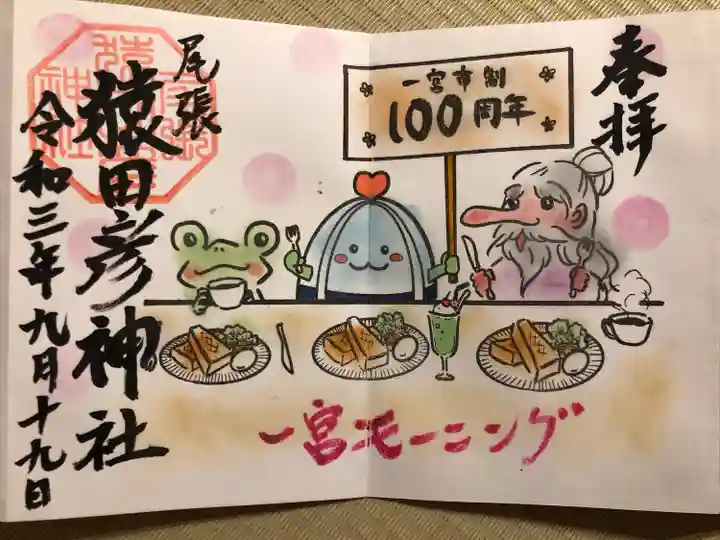 奉拝
一宮市制
100周年
尾張
猿田彦神社
令和三年九月十九日
一宮モーニング